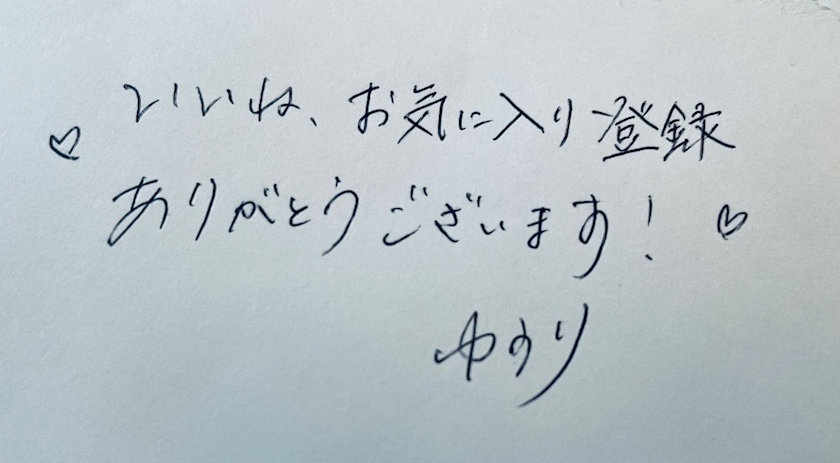 ♡ いいね、お気に入り登録
ありがとうございます! ♡
ゆのり